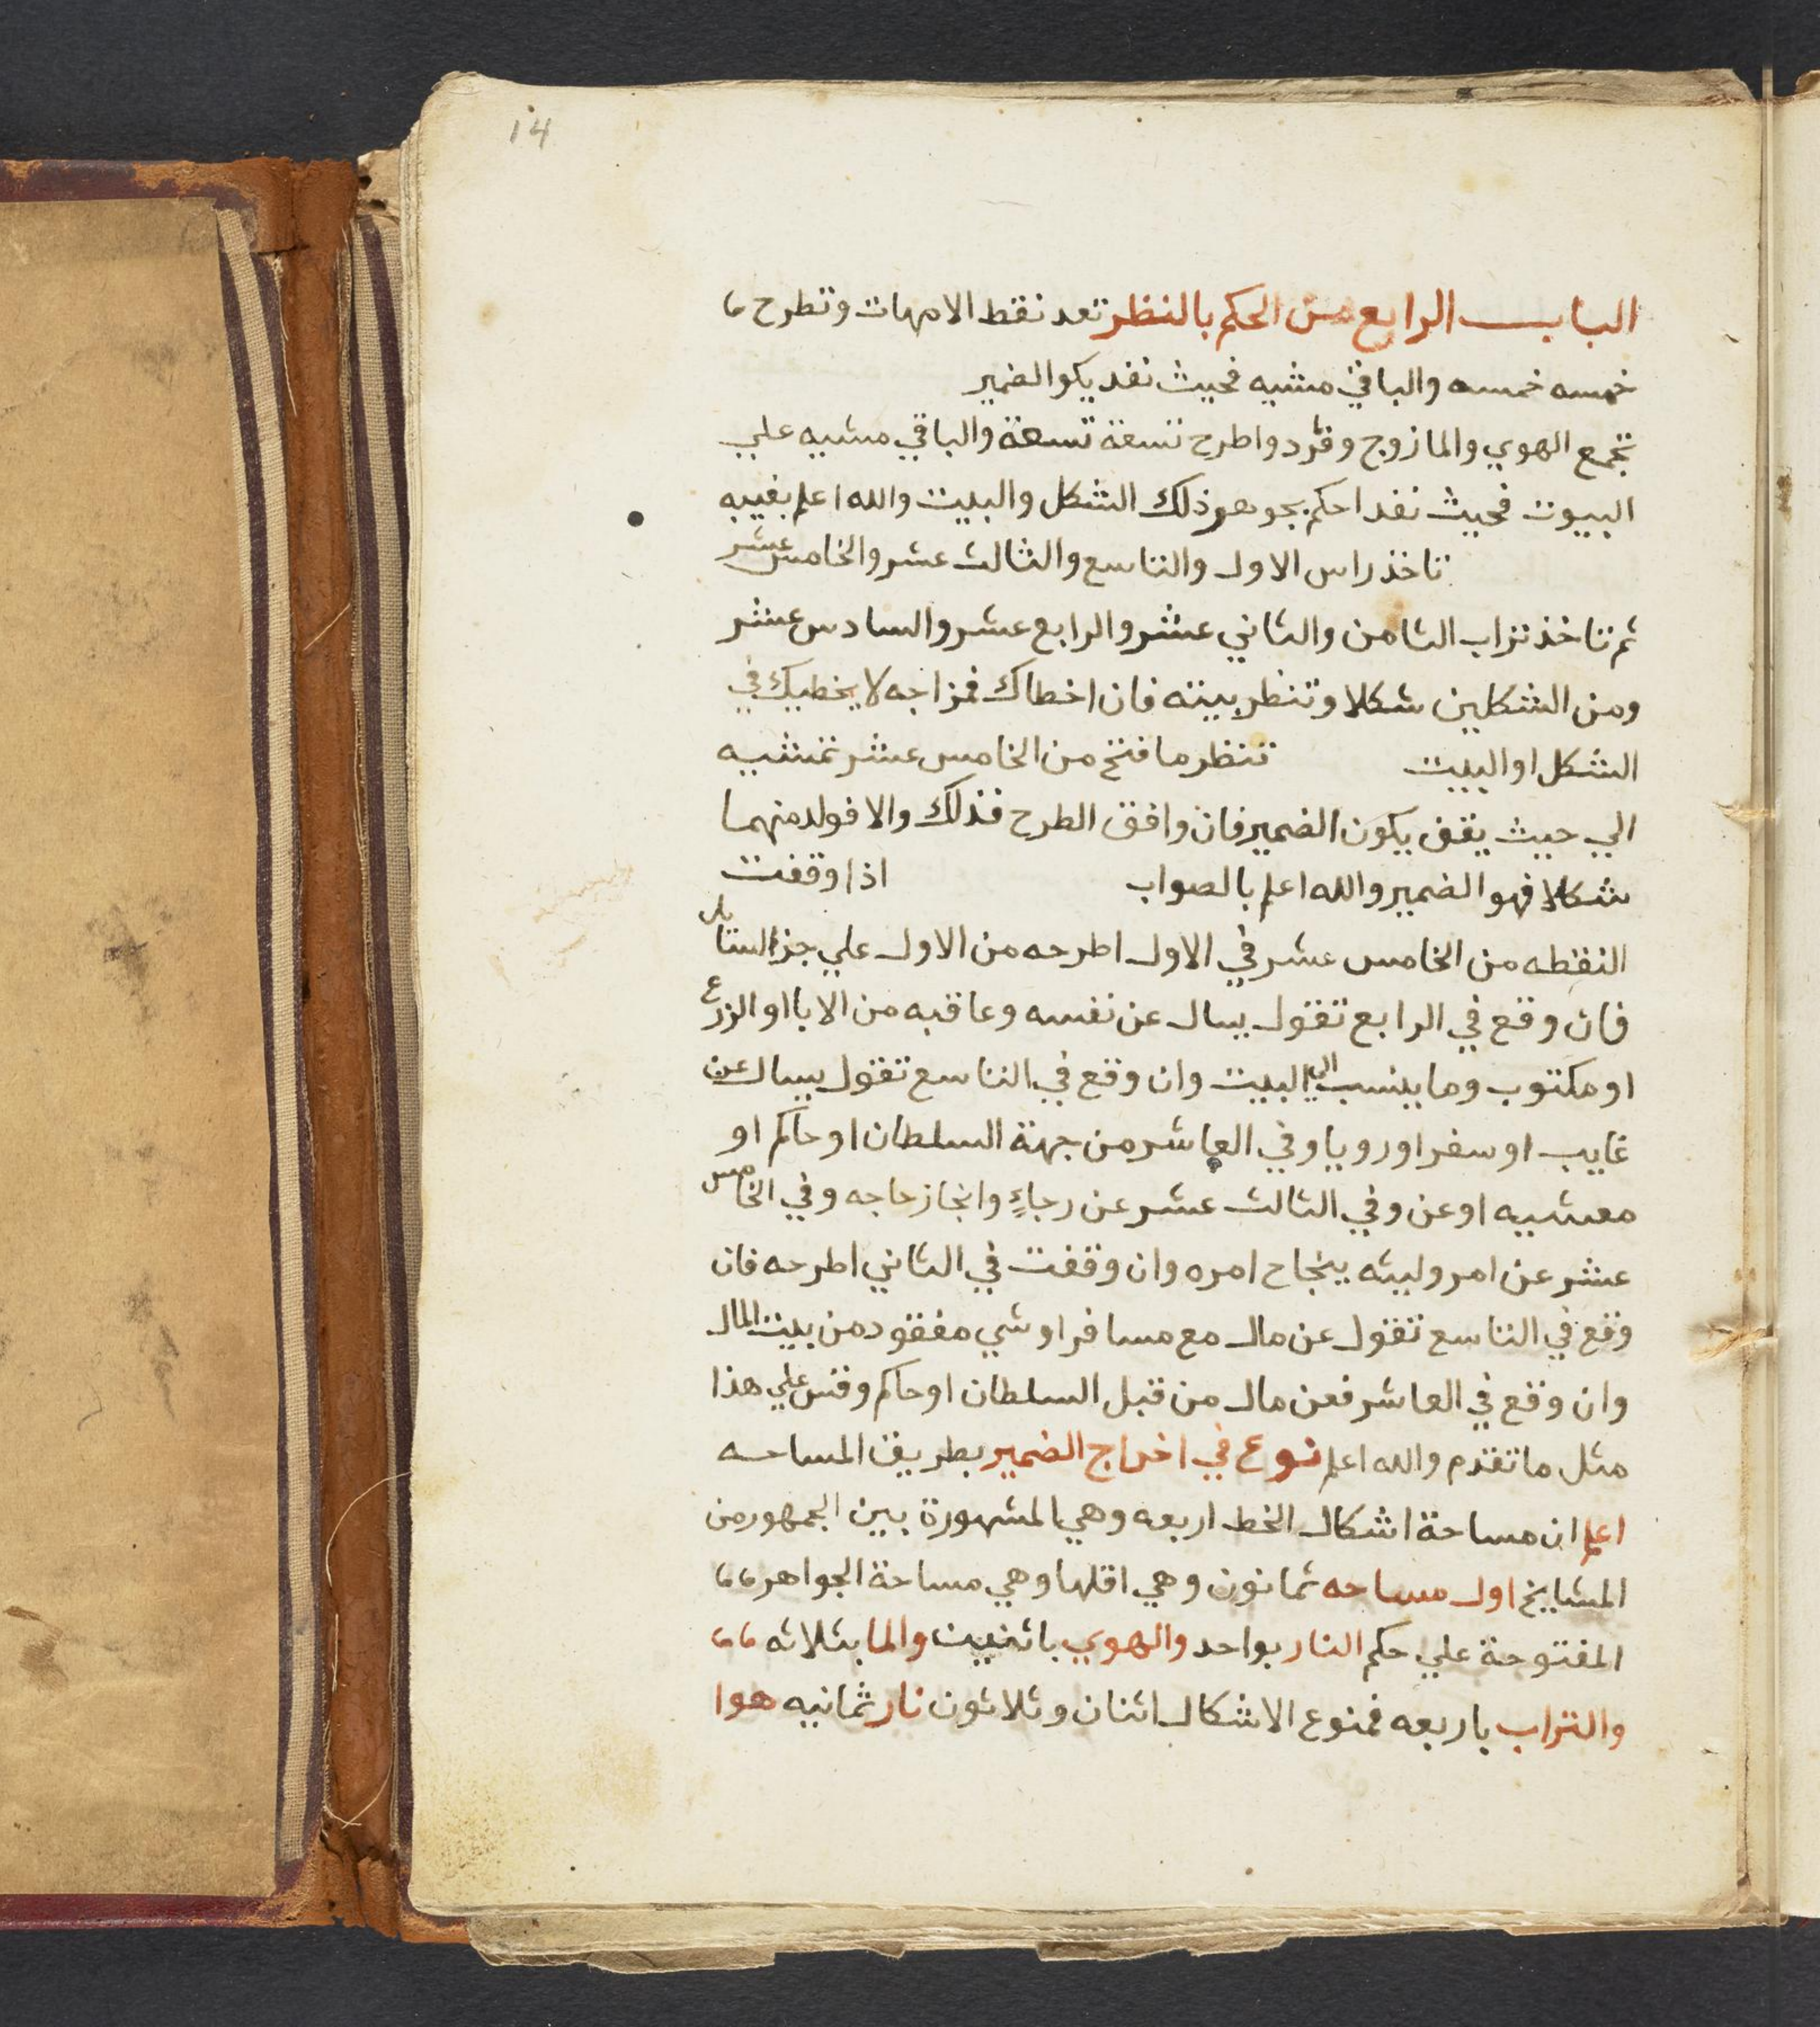 14
الباب الرابع من الحكم بالنظر تعد نقط الامهات وتطرح
خمسه خمسه والباقي مشيه فحيث نفد يكو الضمير
تجمع الهوي والما زوج وفرد واطرح تسعة تسعة والباقي مشيه علي
البيوت فحيث نفد احكم بجوهر ذلك الشكل والبيت والله اعلم بغيبه
تاخذ راس الاول والتاسع والثالث عشر والخامس عشر
ثم تاخذ تراب الثامن والثاني عشر والرابع عشر والسادس عشر
ومن الشكلين شكلا وتنظر بيته فان اخطاك فمزاجه لا يخطيك في
الشكل او البيت تنظر ما فتح من الخامس عشر تمشيه
الي حيث يقف يكون الضمير فان وافق الطرح فذلك والا فولد منهما
شكلا فهو الضمير والله اعلم بالصواب اذا وقفت
النقطه من الخامس عشر في الاول اطرحه من الاول علي جز السايل
فان وقع في الرابع تقول يسال عن نفسه وعاقبه من الابا او الزرع
او مكتوب وما ينسب الي البيت وان وقع في التاسع تقول يسال عن
غايب او سفر او رويا وفي العاشر من جهة السلطان او حاكم او
معيشيه او عن وفي الثالث عشر عن رجاءٍ وانجاز حاجه وفي الخامس
عشر عن امر ولبيثه ينجاح امره وان وقفت في الثاني اطرحه فان
وقع في التاسع تقول عن مال مع مسافر او شي مفقود من بيت المال
وان وقع في العاشر فعن مال من قبل السلطان او حاكم وقس علي هذا
مثل ما تقدم والله اعلم نوع في اخراج الضمير بطريق المساحه
اعلم ان مساحة اشكال الخط اربعه وهي المشهورة بين الجمهور من
المشايخ اول مساحه ثمانون وهي اقلها وهي مساحة الجواهر
المفتوحة علي حكم النار بواحد والهوي باثنين والما بثلاثه
والتراب باربعه فمنوع الاشكال اثنان وثلاثون نار ثمانيه هوا